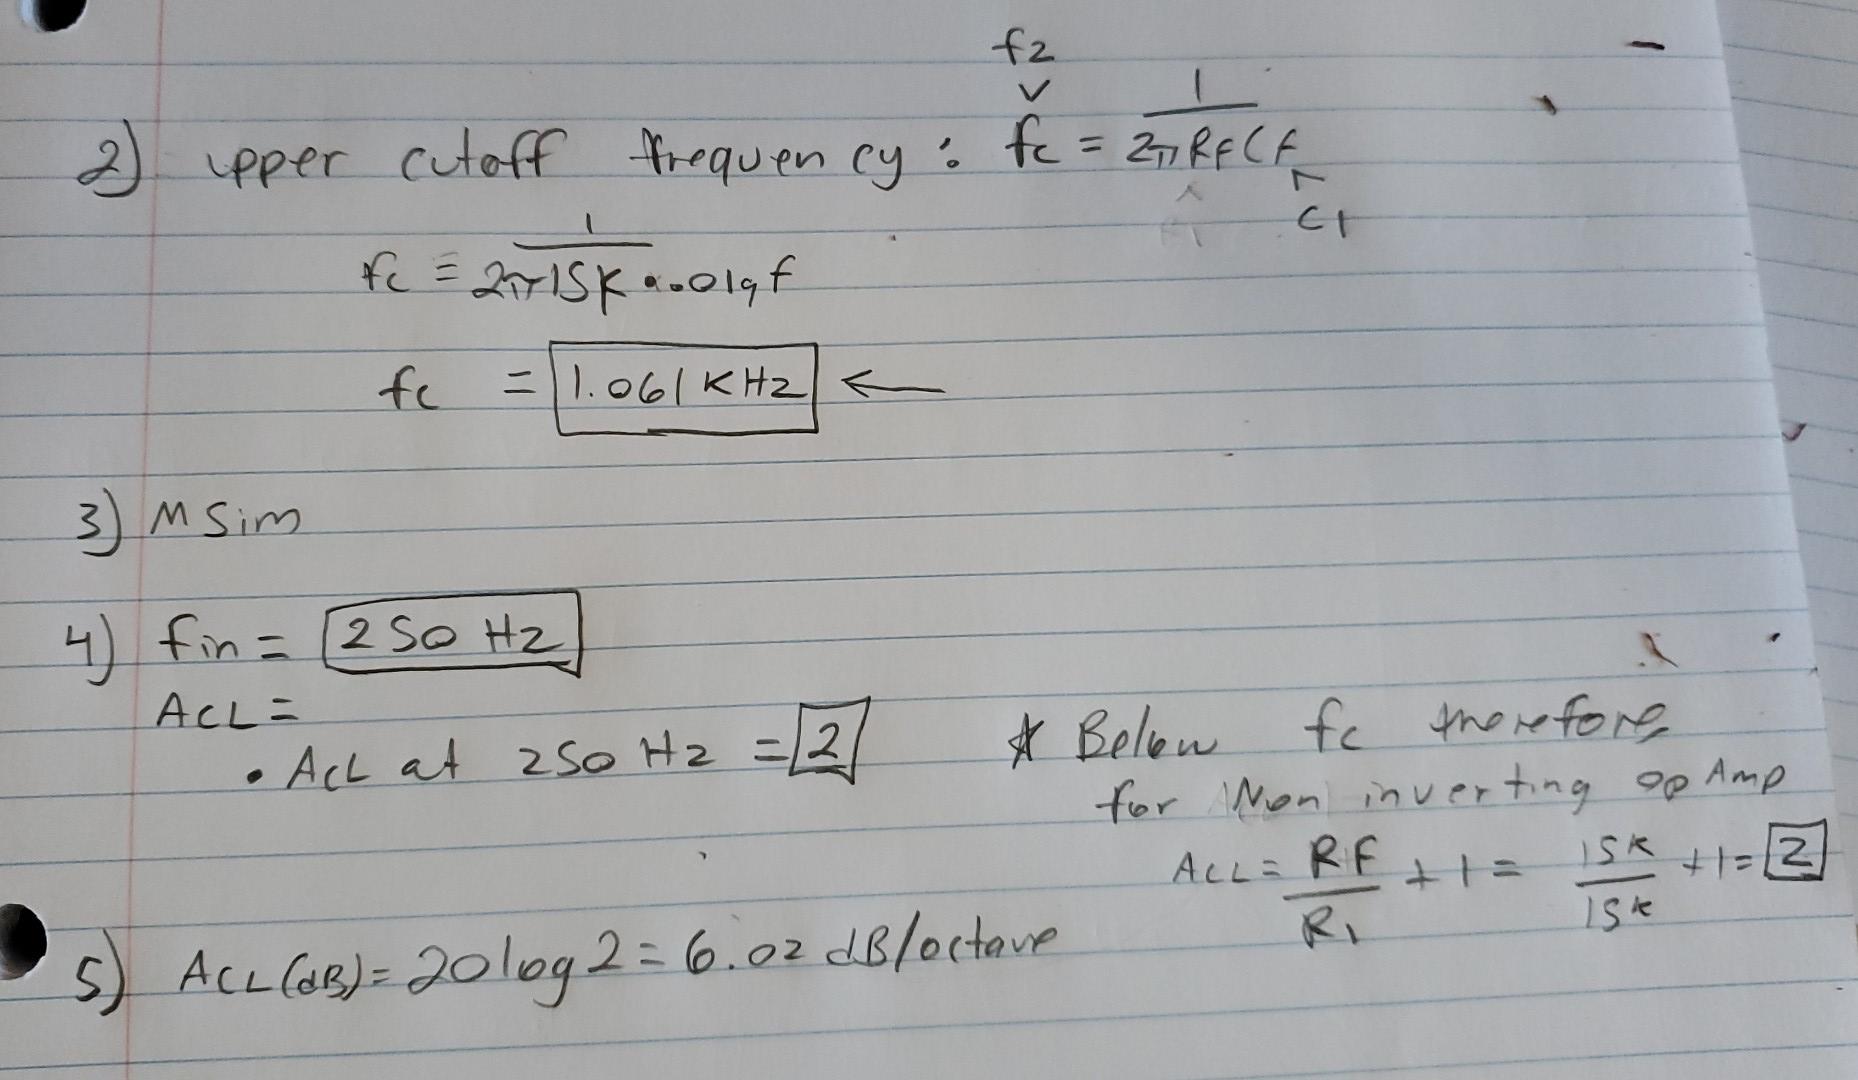 f2
v
2) upper cutoff frequency : fc = 1 / 2π RF CF
↑ C1
fc = 1 / 2π 15K • .01 μf
fc = 1.061 KHz ←
3) M Sim
4) fin = 250 Hz
ACL =
• ACL at 250 Hz = 2
* Below fc therefore
for Non inverting op Amp
ACL = RF / R1 + 1 = 15K / 15K + 1 = 2
5) ACL (dB) = 20 log 2 = 6.02 dB/octave